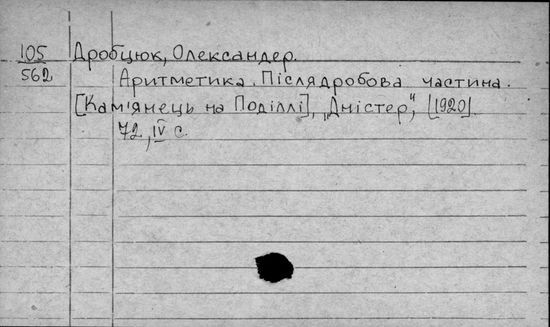 105 Дробцюк, Олександер.
562 Аритметика. Післядробова частина.
[Кам'янець на Поділлі], „Дністер", [1920].
72, IV с.